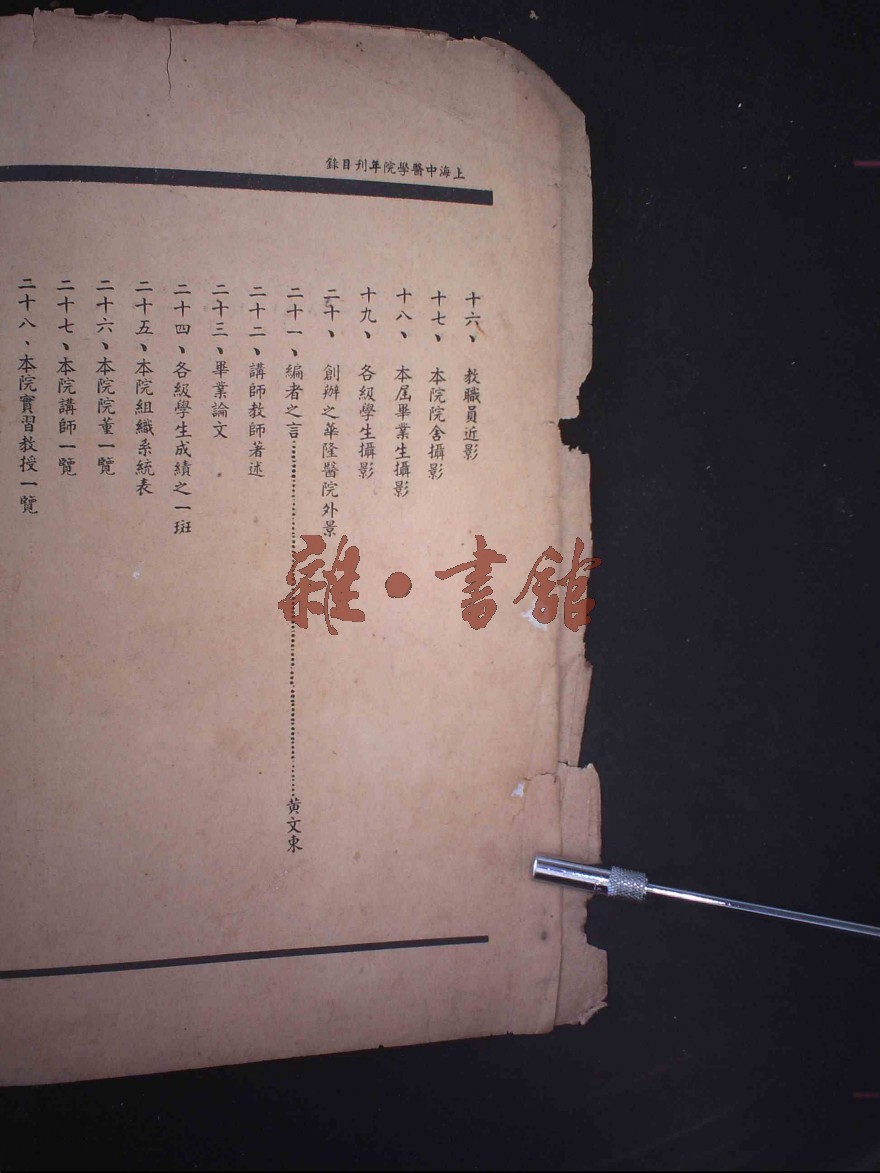 上海中醫學院年刊目錄
十六、教職員近影
十七、本院院舍攝影
十八、本屆畢業生攝影
十九、各級學生攝影
二十、創辦之華隆醫院外景
二十一、編者之言……黃文東
二十二、講師教師著述
二十三、畢業論文
二十四、各級學生成績之一斑
二十五、本院組織系統表
二十六、本院院董一覽
二十七、本院講師一覽
二十八、本院實習教授一覽
雜·書館